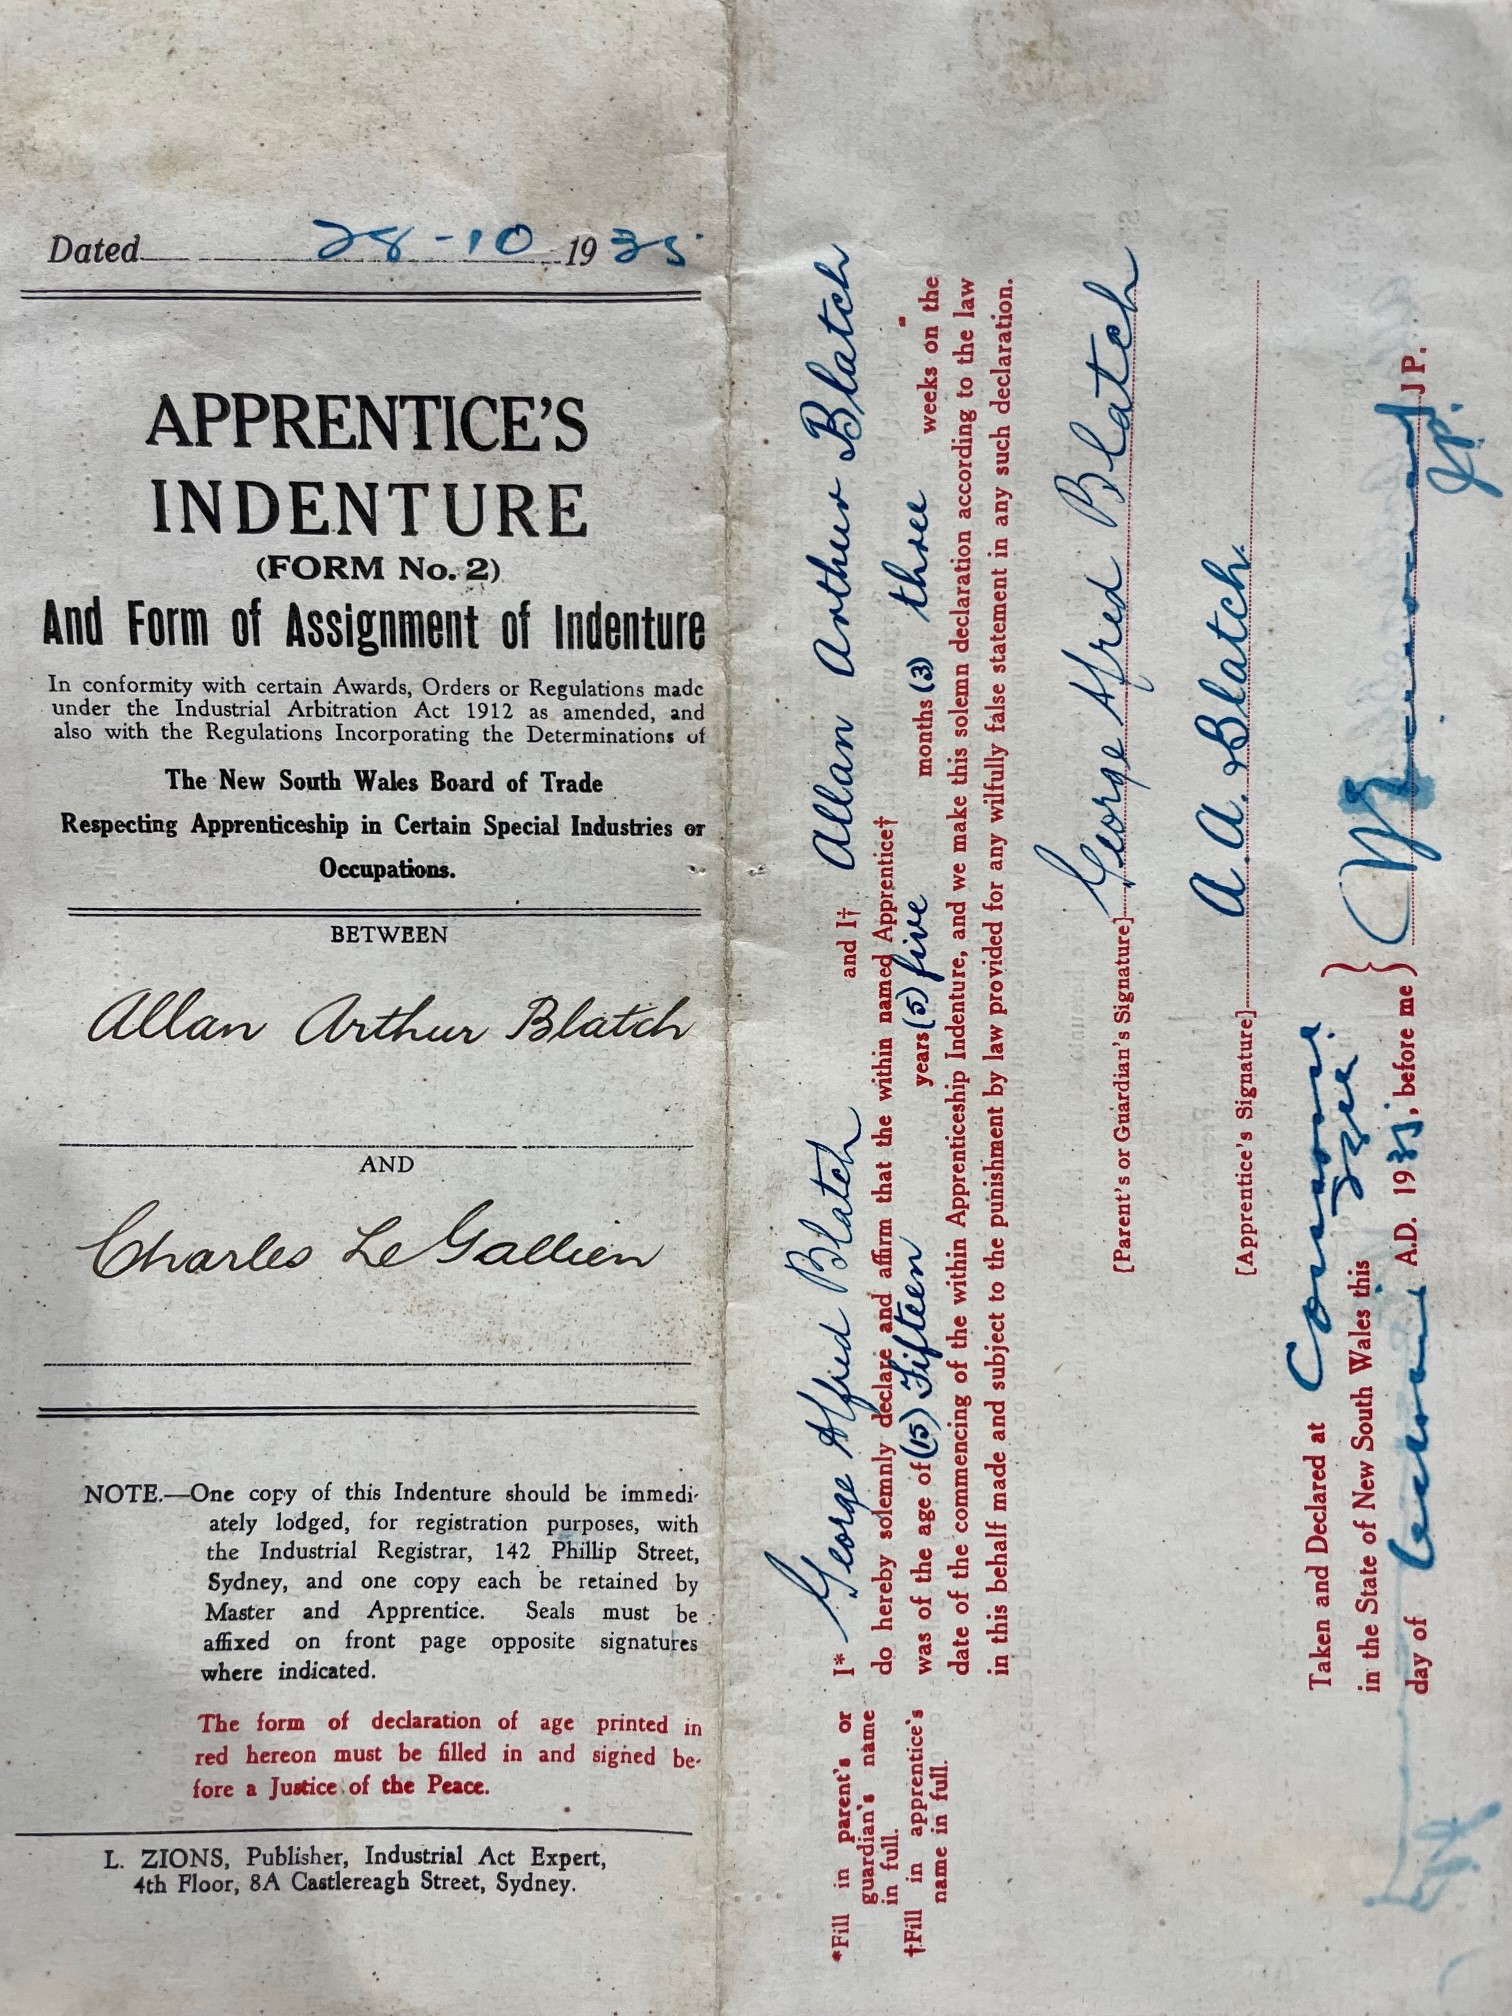 Dated 28-10 1935
APPRENTICE'S
INDENTURE
(FORM No. 2)
And Form of Assignment of Indenture
In conformity with certain Awards, Orders or Regulations made
under the Industrial Arbitration Act 1912 as amended, and
also with the Regulations Incorporating the Determinations of
The New South Wales Board of Trade
Respecting Apprenticeship in Certain Special Industries or
Occupations.
BETWEEN
Allan Arthur Blatch
AND
Charles Le Gallien
NOTE.—One copy of this Indenture should be immedi-
ately lodged, for registration purposes, with
the Industrial Registrar, 142 Phillip Street,
Sydney, and one copy each be retained by
Master and Apprentice. Seals must be
affixed on front page opposite signatures
where indicated.
The form of declaration of age printed in
red hereon must be filled in and signed be-
fore a Justice of the Peace.
L. ZIONS, Publisher, Industrial Act Expert,
4th Floor, 8A Castlereagh Street, Sydney.
*Fill in parent's or
guardian's name
in full.
†Fill in apprentice's
name in full.
I* George Alfred Blatch and I† Allan Arthur Blatch
do hereby solemnly declare and affirm that the within named Apprentice†
was of the age of (15) Fifteen years (5) five months (3) three weeks on the
date of the commencing of the within Apprenticeship Indenture, and we make this solemn declaration according to the law
in this behalf made and subject to the punishment by law provided for any wilfully false statement in any such declaration.
[Parent's or Guardian's Signature] George Alfred Blatch
[Apprentice's Signature] A. A. Blatch.
Taken and Declared at
in the State of New South Wales this
day of A.D. 1935, before me J.P.
J.P.